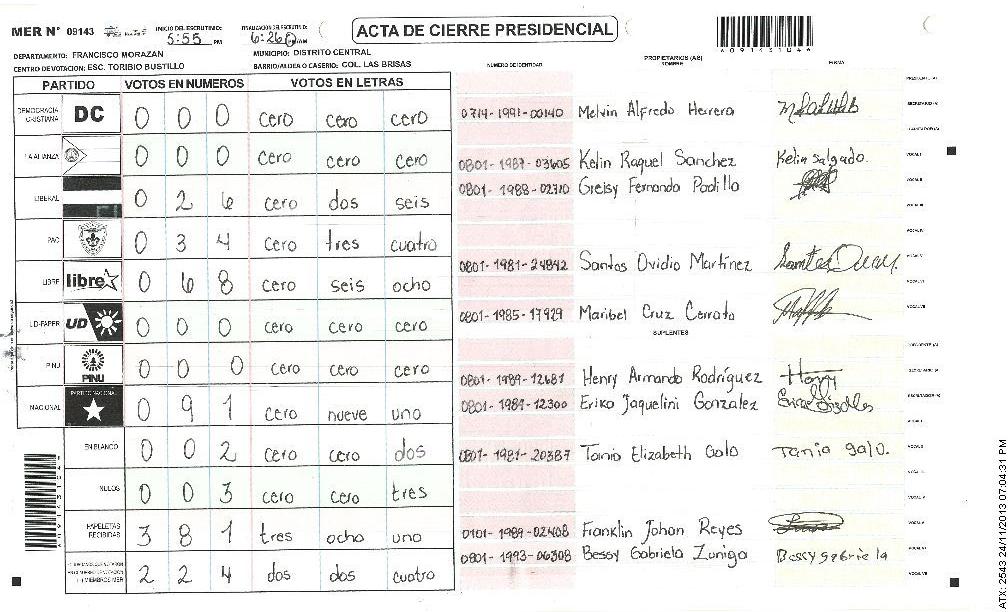 MER N° 09143
INICIO DEL ESCRUTINIO: 5:55 PM
FINALIZACION DEL ESCRUTINIO: 6:26
ACTA DE CIERRE PRESIDENCIAL
DEPARTAMENTO: FRANCISCO MORAZAN
MUNICIPIO: DISTRITO CENTRAL
CENTRO DE VOTACION: ESC. TORIBIO BUSTILLO
BARRIO/ALDEA O CASERIO: COL. LAS BRISAS
PARTIDO VOTOS EN NUMEROS VOTOS EN LETRAS
DEMOCRACIA CRISTIANA DC 0 0 0 cero cero cero
LA ALIANZA 0 0 0 cero cero cero
LIBERAL 0 2 6 cero dos seis
PAC 0 3 4 cero tres cuatro
LIBRE libre 0 6 8 cero seis ocho
UD-FAPER UD 0 0 0 cero cero cero
PINU PINU 0 0 0 cero cero cero
NACIONAL PARTIDO NACIONAL 0 9 1 cero nueve uno
EN BLANCO 0 0 2 cero cero dos
NULOS 0 0 3 cero cero tres
PAPELETAS RECIBIDAS 3 8 1 tres ocho uno
2 2 4 dos dos cuatro
NUMERO DE IDENTIDAD
PROPIETARIOS (AS)
NOMBRE
FIRMA
0714-1991-00140 Melvin Alfredo Herrera
0801-1987-03605 Kelin Raquel Sanchez Kelin Salgado.
0801-1988-02710 Greisy Fernanda Padilla
0801-1981-24842 Santos Ovidio Martinez
0801-1985-17929 Maribel Cruz Cerrato
SUPLENTES
0801-1989-12687 Henry Armando Rodríguez Henry
0801-1984-12300 Erika Jaquelini Gonzalez
0801-1981-20387 Tania Elizabeth Galo Tania galo.
0101-1989-02408 Franklin Johan Reyes
0801-1993-06308 Bessy Gabriela Zuniga Bessy gabriela
ATX: 2543 24/11/2013 07:04:31 PM